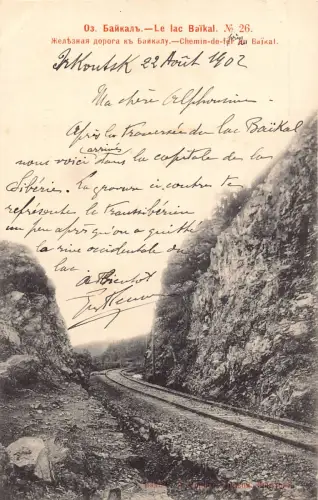 Оз. Байкалъ.—Le lac Baïkal. № 26.
Желѣзная дорога къ Байкалу.—Chemin-de-fer du Baïkal.
Irkoutsk 22 Août 1902
Ma chère Alphonsine
Après la traversée du lac Baïkal
nous voici arrivés dans la capitale de la
Sibérie. La gravure ci contre te
représente le transsibérien
un peu après qu'on a quitté
la rive occidentale du
lac
à Bientôt